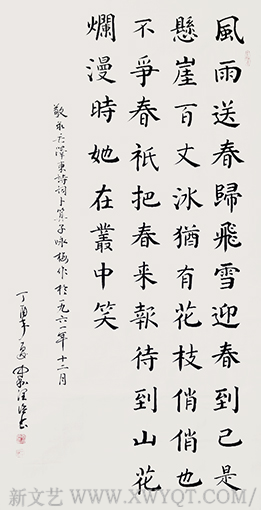 風雨送春歸飛雪迎春到已是
懸崖百丈冰猶有花枝俏俏也
不爭春祇把春来報待到山花
爛漫時她在叢中笑
敬录毛澤東詩詞卜算子咏梅作於一九六一年十二月
丁酉年夏
新文艺 WWW.XWYQT.COM/